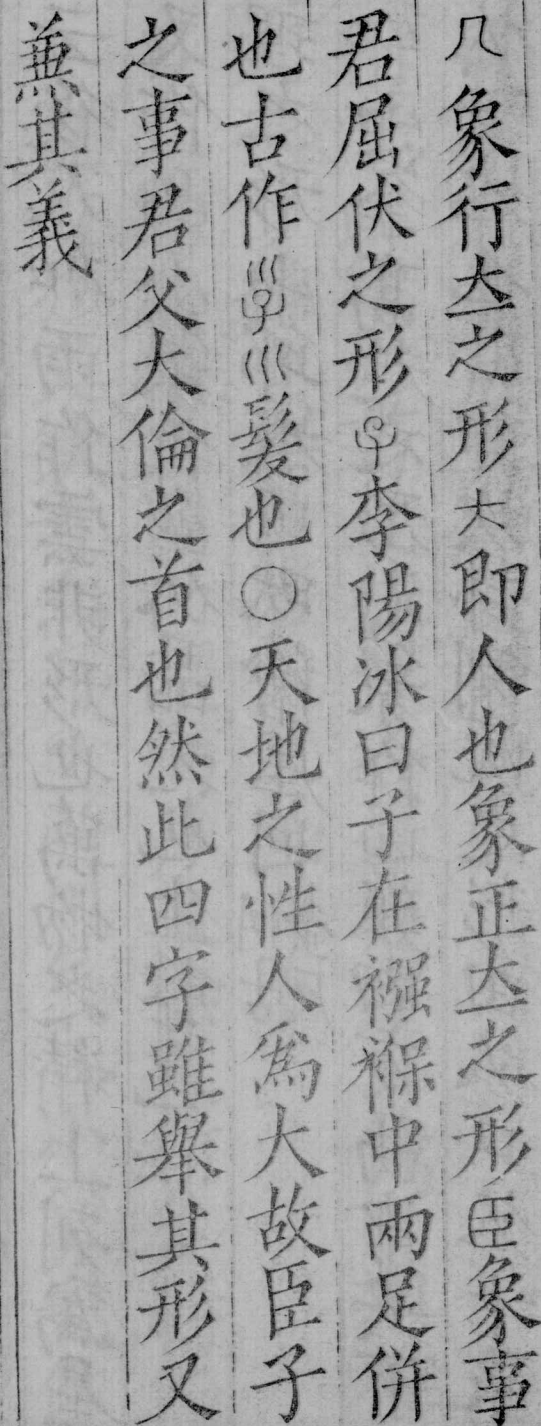 几象行𡗓之形大即人也象正𡗓之形臣象事
君屈伏之形子李陽冰曰子在襁褓中兩足併
也古作𡿹巛髮也○天地之性人爲大故臣子
之事君父大倫之首也然此四字雖舉其形又
兼其義